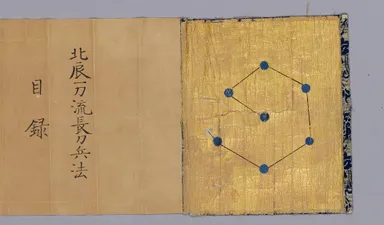 北辰一刀流長刀兵法
目録